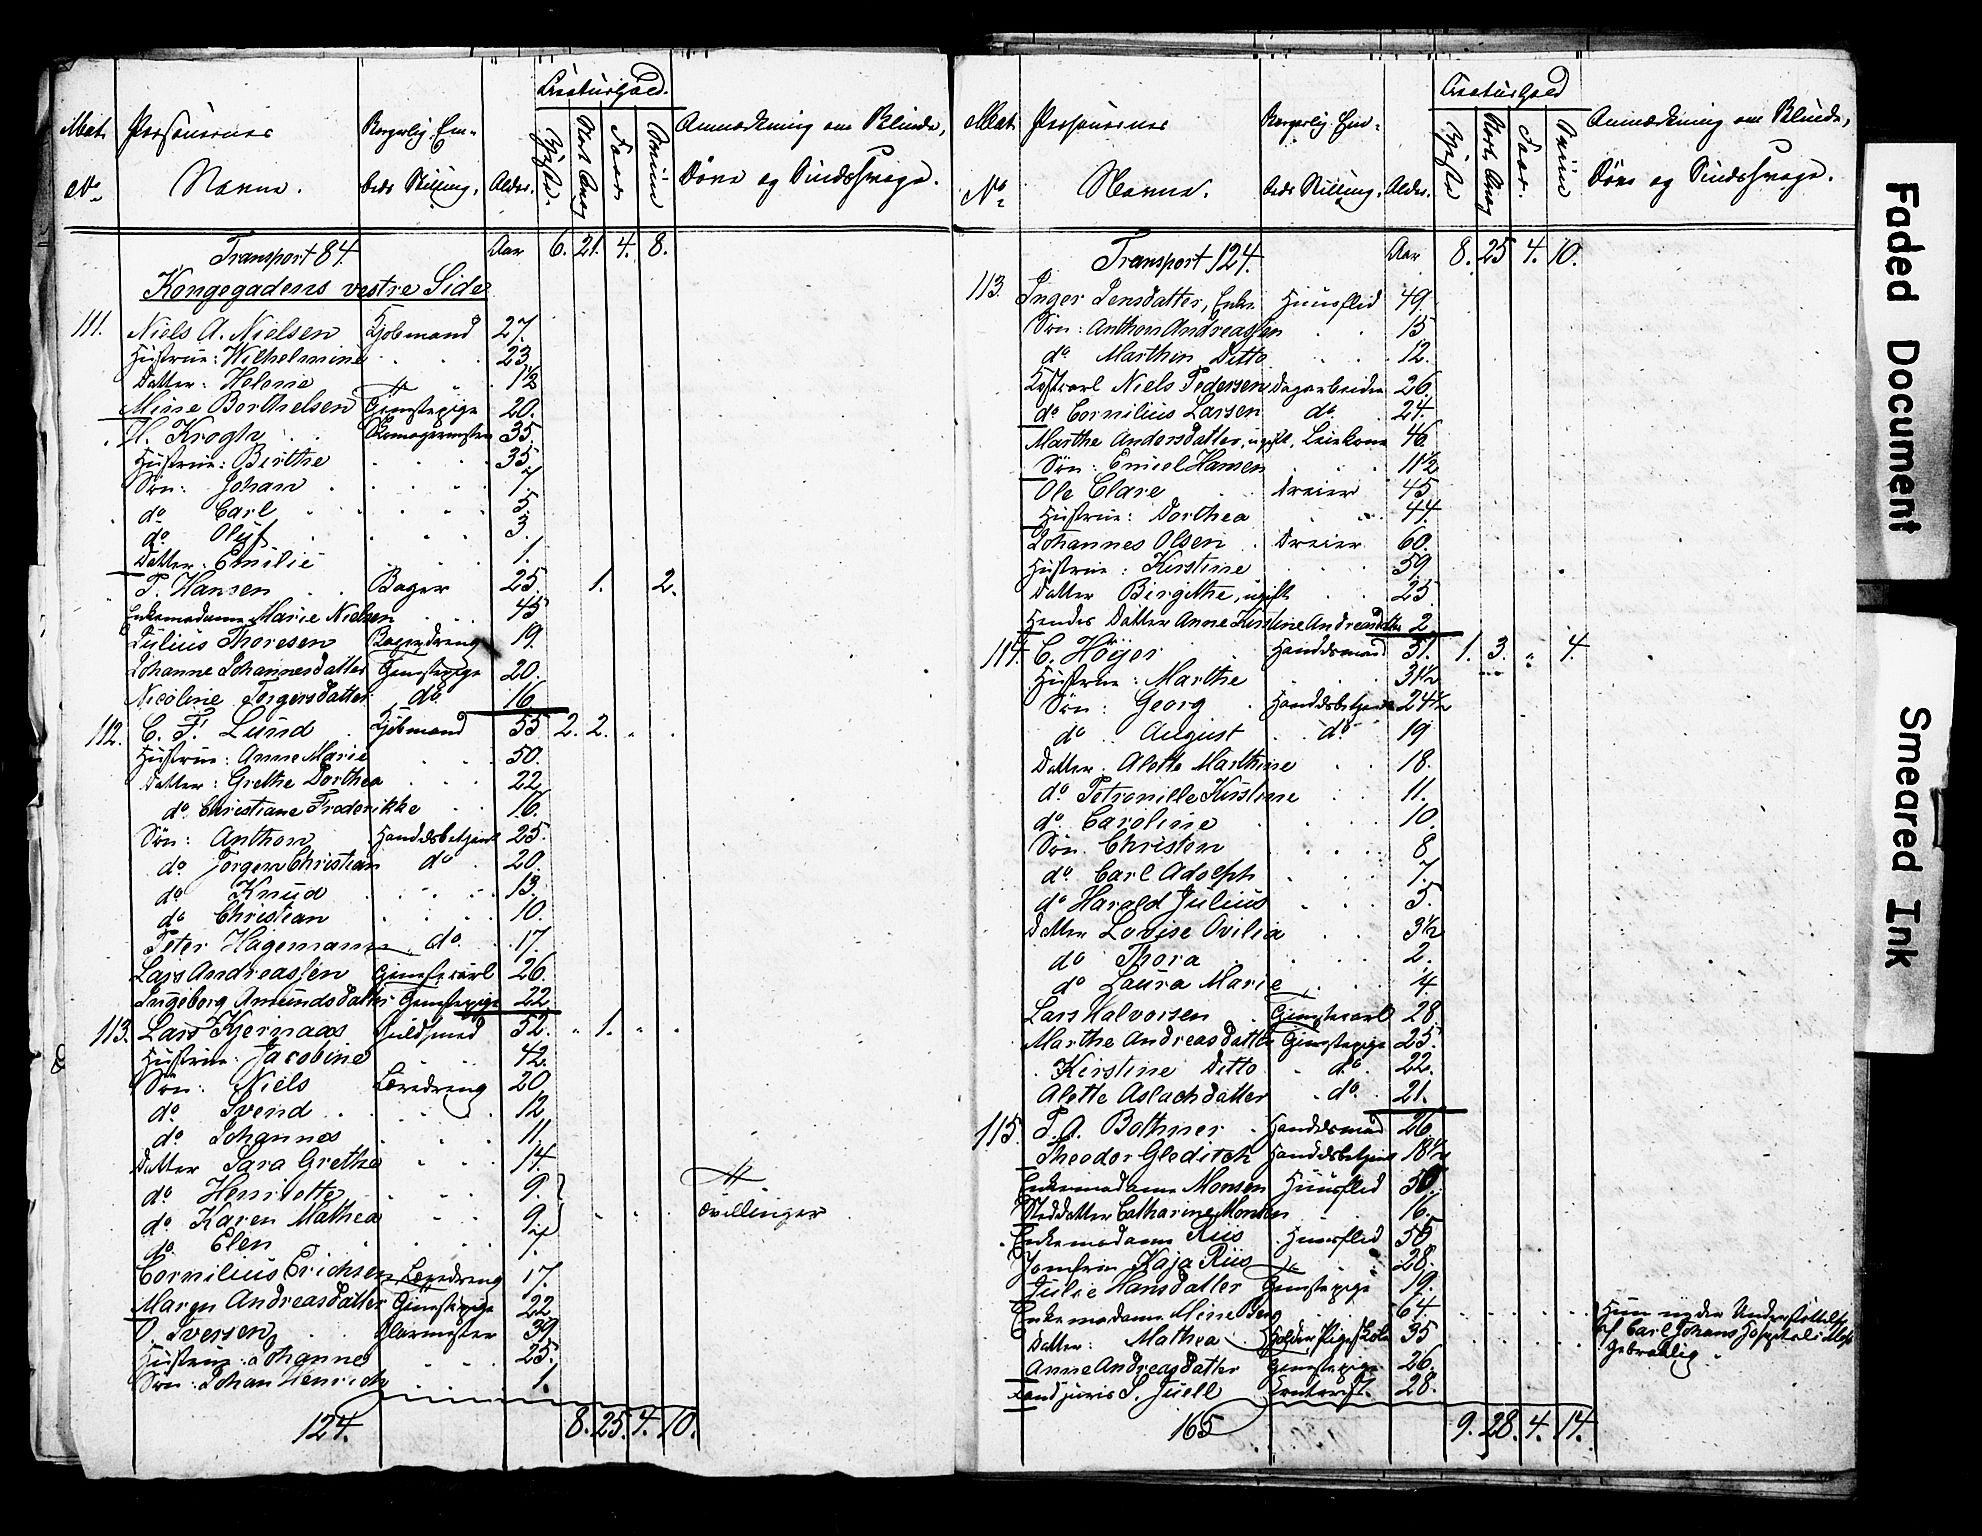 Mat. No. Personernes Navne. Borgerlig Embeds Stilling. Alder. Creaturhold. Heste. Stort Qvæg Faar Sviin Anmærkning om Blinde, Døve og Sindssvage.
Transport 84. Aar 6. 21. 4. 8.
Kongegadens vestre Side
111. Niels A. Nielsen Kjøbmand 27.
Hustrue: Wilhelmine 23.
Datter: Helene 1½
Mine Berthelsen Tjenstepige 20.
H. Krogh Skomagermester 35.
Hustrue: Berthe 35.
Søn: Johan 7.
do Carl 5.
do Oluf 3.
Datter: Emilie 1.
P. Hansen Bager 25. 1. 2.
Enkemadame Marie Nielsen 45
Julius Thoresen Bagerdreng 19.
Johanne Johannesdatter Tjenstepige 20.
Nicoline Torgersdatter do. 16
112. C. F. Lund Kjøbmand 55 2. 2.
Hustrue: Anne Marie 50.
Datter: Grethe Dorthea 22
do. Christiane Frederikke 16.
Søn: Anthon Handelsbetjent 25.
do Jørgen Christian do 20.
do Knud 13.
do Christian 10.
Peter Hagemann do. 17.
Lars Andreassen Tjenstecarl 26.
Ingeborg Amundsdatter Tjenstepige 22
113. Lars Kjernaas Guldsmed 52. " 1. "
Hustrue: Jacobine 42.
Søn: Niels Læredreng 20
do. Svend 12
do. Johannes 11.
Datter Sara Grethe 14.
do Henriette 9.
do Karen Mathea 9. Tvillinger
do. Elen 7.
Cornilius Erichsen Læredreng 17.
Maren Andreasdatter Tjenstepige 22
O. Iversen Glarmester 39.
Hustrue: Johanne 25.
Søn: Johan Henrich 1.
124. 8. 25. 4. 10.
Mat. No. Personernes Navne. Borgerlig Embeds Stilling. Alder. Creaturhold Heste Stort Qvæg Faar. Sviin Anmærkning om Blinde, Døve og Sindssvage.
Transport 124. Aar 8. 25 4. 10.
113. Inger Jensdatter, Enke Huusflid 49.
Søn: Anthon Andreassen 15
do Marthin Ditto 12.
Kostcarl Niels Pedersen Dagarbeider 26.
do Cornilius Larsen do. 24.
Marthe Andersdatter, ugift, 46
Søn: Emiel Hansen 11½
Ole Clare Dreier 45
Hustrue: Dorthea 44.
Johannes Olsen Dreier 60.
Hustrue: Kirstine 59.
Datter Birgithe, ugift 25.
Hendes Datter Anne Kirstine Andreasdatter 2
114. C. Höyer Handelsmand 51. 1. 3. " 4.
Hustrue: Marthe 31½
Søn: Georg Handelsbetjent 24½
do August do. 19
Datter. Alette Marthine 18.
do. Petronille Kirstine 11.
do. Caroline 10.
Søn. Christen 8
do. Carl Adolph 7.
do Harald Julius 5.
Datter Lovise Ovilia 3½
do Thora 2.
do Laura Marie ¼
Lars Halvorsen Tjenstecarl 28
Marthe Andreasdatter Tjenstepige 25.
Kirstine Ditto do. 22.
Alette Aslachdatter do. 21.
115. P. A. Bothner Handelsmand 26
Theodor Gleditsch Handelsbetjent 18½
Enkemadame Monsen Huusflid 50.
Steddatter Catharine Monsen 16.
Enkemadame Riis Huusflid 56
Jomfru Kaja Riis 28.
Julie Hansdatter Tjenstepige 19.
Enkemadame Mine Berg 64 Hun nyder Understøttelse
Datter: Mathea Holder Pigeskole 35 af Carl Johans Hospital
Anne Andreasdatter Tjenstepige 26. Gebrætlig
Cand juris S. Juell 28.
165 9. 28. 4. 14.
Faded Document
Smeared Ink